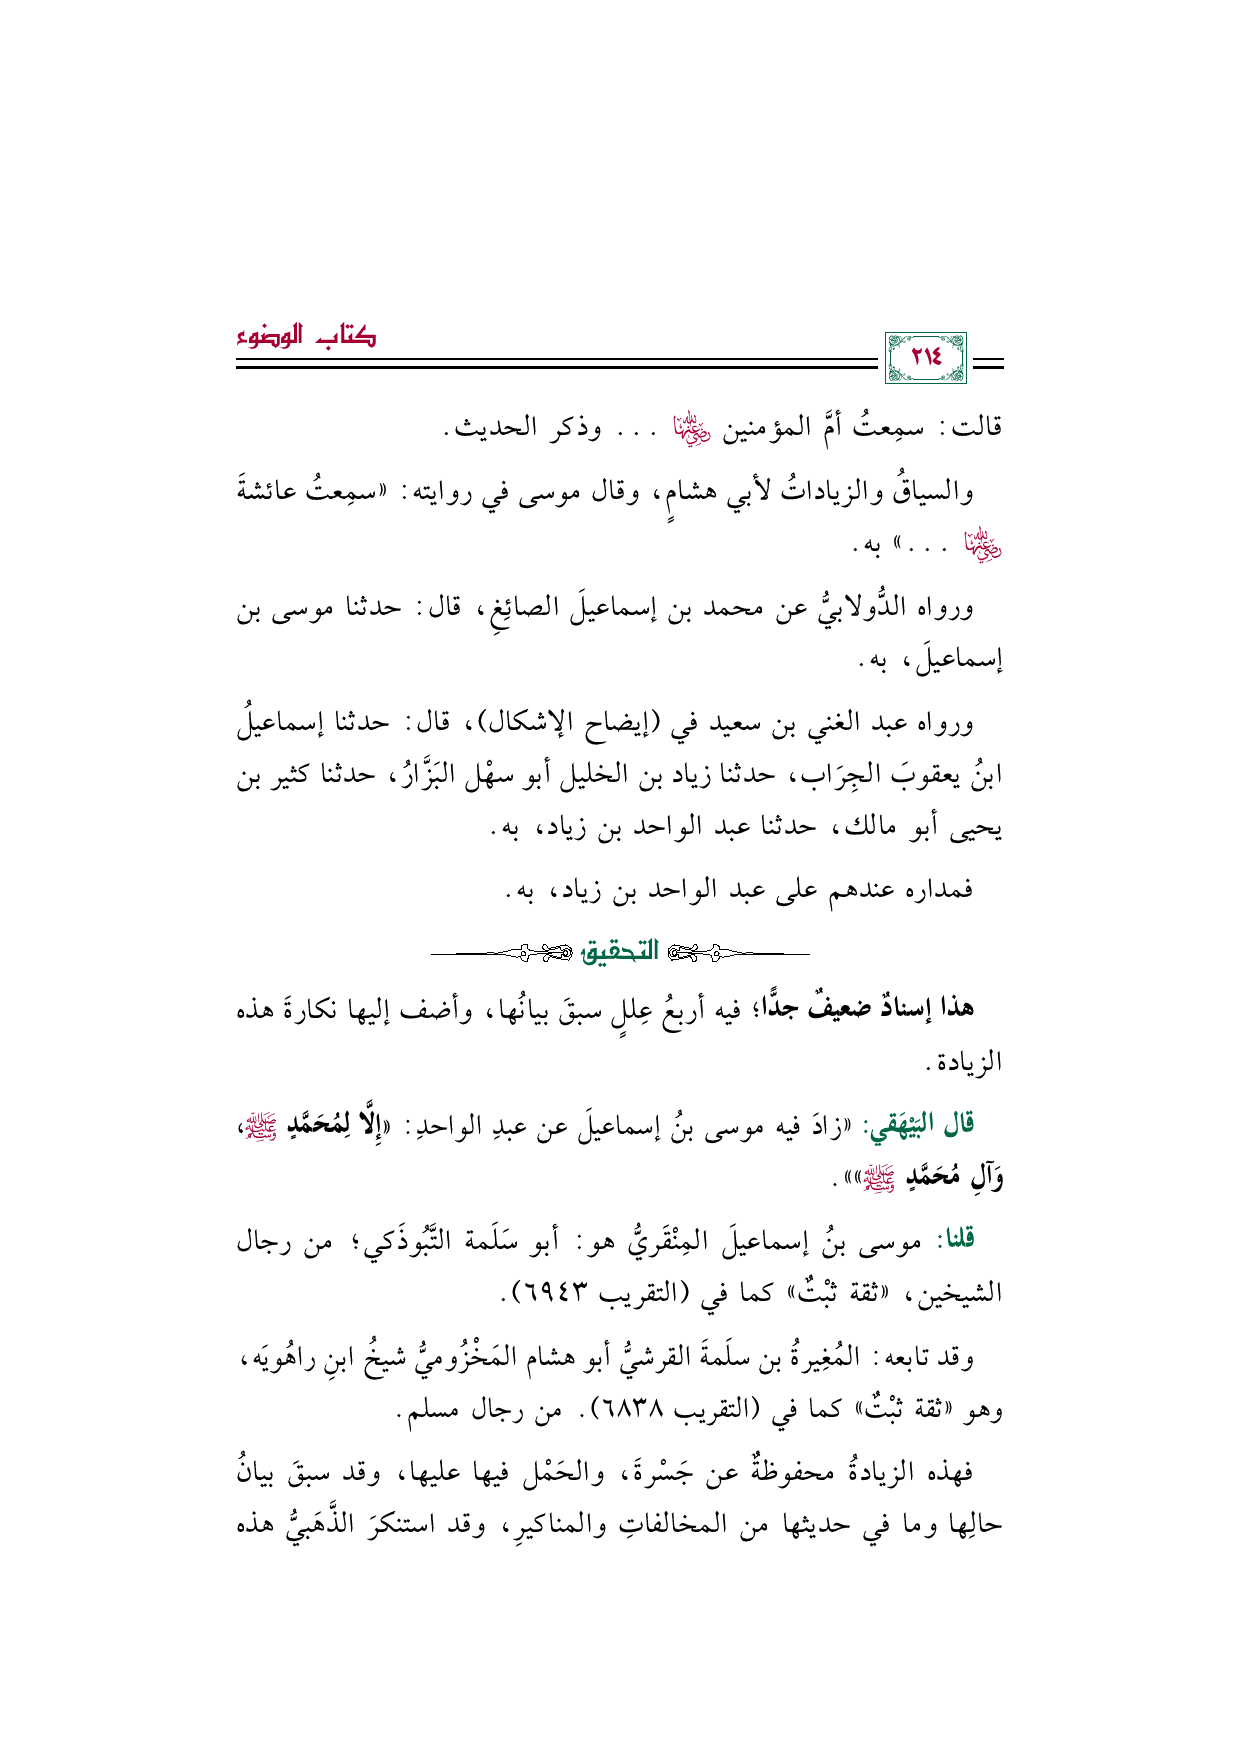 كتاب الوضوء
٢١٤
قالت: سمِعتُ أمَّ المؤمنين رضي الله عنها ... وذكر الحديث.
والسياقُ والزياداتُ لأبي هشامٍ، وقال موسى في روايته: «سمِعتُ عائشةَ
رضي الله عنها ...» به.
ورواه الدُّولابيُّ عن محمد بن إسماعيلَ الصائِغِ، قال: حدثنا موسى بن
إسماعيلَ، به.
ورواه عبد الغني بن سعيد في (إيضاح الإشكال)، قال: حدثنا إسماعيلُ
ابنُ يعقوبَ الجِرَاب، حدثنا زياد بن الخليل أبو سهْل البَزَّارُ، حدثنا كثير بن
يحيى أبو مالك، حدثنا عبد الواحد بن زياد، به.
فمداره عندهم على عبد الواحد بن زياد، به.
التحقيق
هذا إسنادٌ ضعيفٌ جدًّا؛ فيه أربعُ عِللٍ سبقَ بيانُها، وأضف إليها نكارةَ هذه
الزيادة.
قال البَيْهَقي: «زادَ فيه موسى بنُ إسماعيلَ عن عبدِ الواحدِ: «إِلَّا لِمُحَمَّدٍ ﷺ،
وَآلِ مُحَمَّدٍ ﷺ»».
قلنا: موسى بنُ إسماعيلَ المِنْقَريُّ هو: أبو سَلَمة التَّبُوذَكي؛ من رجال
الشيخين، «ثقة ثبْتٌ» كما في (التقريب ٦٩٤٣).
وقد تابعه: المُغِيرةُ بن سلَمةَ القرشيُّ أبو هشام المَخْزُوميُّ شيخُ ابنِ راهُويَه،
وهو «ثقة ثبْتٌ» كما في (التقريب ٦٨٣٨). من رجال مسلم.
فهذه الزيادةُ محفوظةٌ عن جَسْرةَ، والحَمْل فيها عليها، وقد سبقَ بيانُ
حالِها وما في حديثها من المخالفاتِ والمناكيرِ، وقد استنكرَ الذَّهَبيُّ هذه